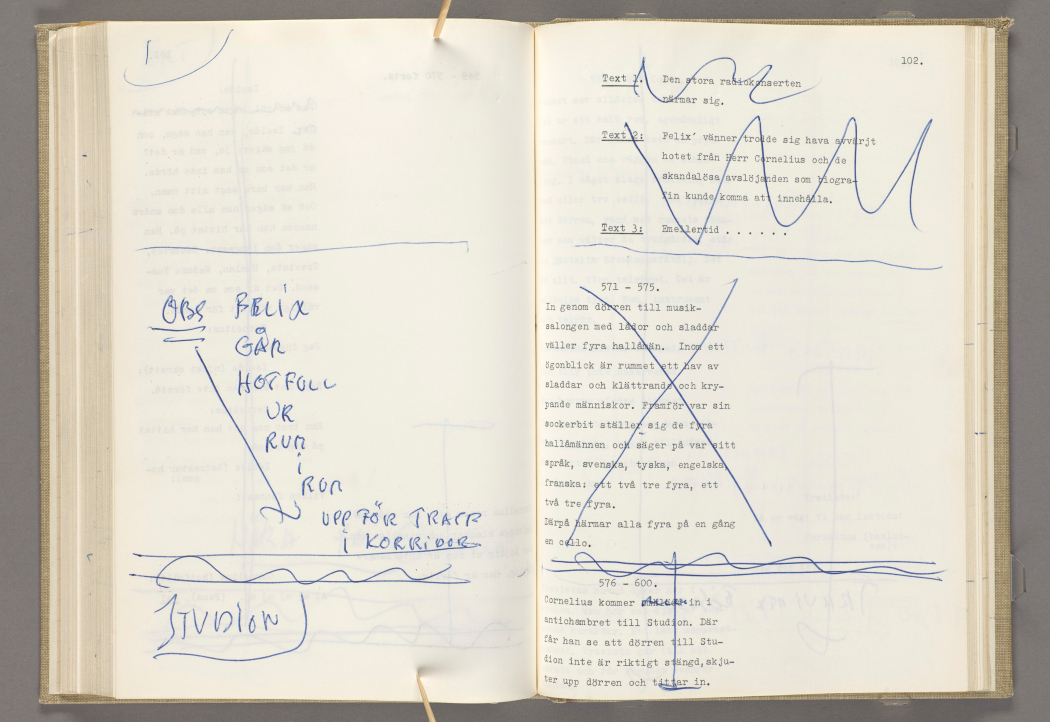 OBS FELIX
GÅR
HOTFULL
UR
RUM
i
RUM
UPPFÖR TRAPP
i KORRIDOR
STUDION
102.
Text 1. Den stora radiokonserten
närmar sig.
Text 2: Felix´ vänner trodde sig hava avvärjt
hotet från Herr Cornelius och de
skandalösa avslöjanden som biogra-
fin kunde komma att innehålla.
Text 3: Emellertid . . . . . .
571 - 575.
In genom dörren till musik-
salongen med lådor och sladdar
väller fyra hallåmän. Inom ett
ögonblick är rummet ett hav av
sladdar och klättrande och kry-
pande människor. Framför var sin
sockerbit ställer sig de fyra
hallåmännen och säger på var sitt
språk, svenska, tyska, engelska,
franska: ett två tre fyra, ett
två tre fyra.
Därpå härmar alla fyra på en gång
en cello.
576 - 600.
Cornelius kommer in i
antichambret till Studion. Där
får han se att dörren till Stu-
dion inte är riktigt stängd,skju-
ter upp dörren och tittar in.